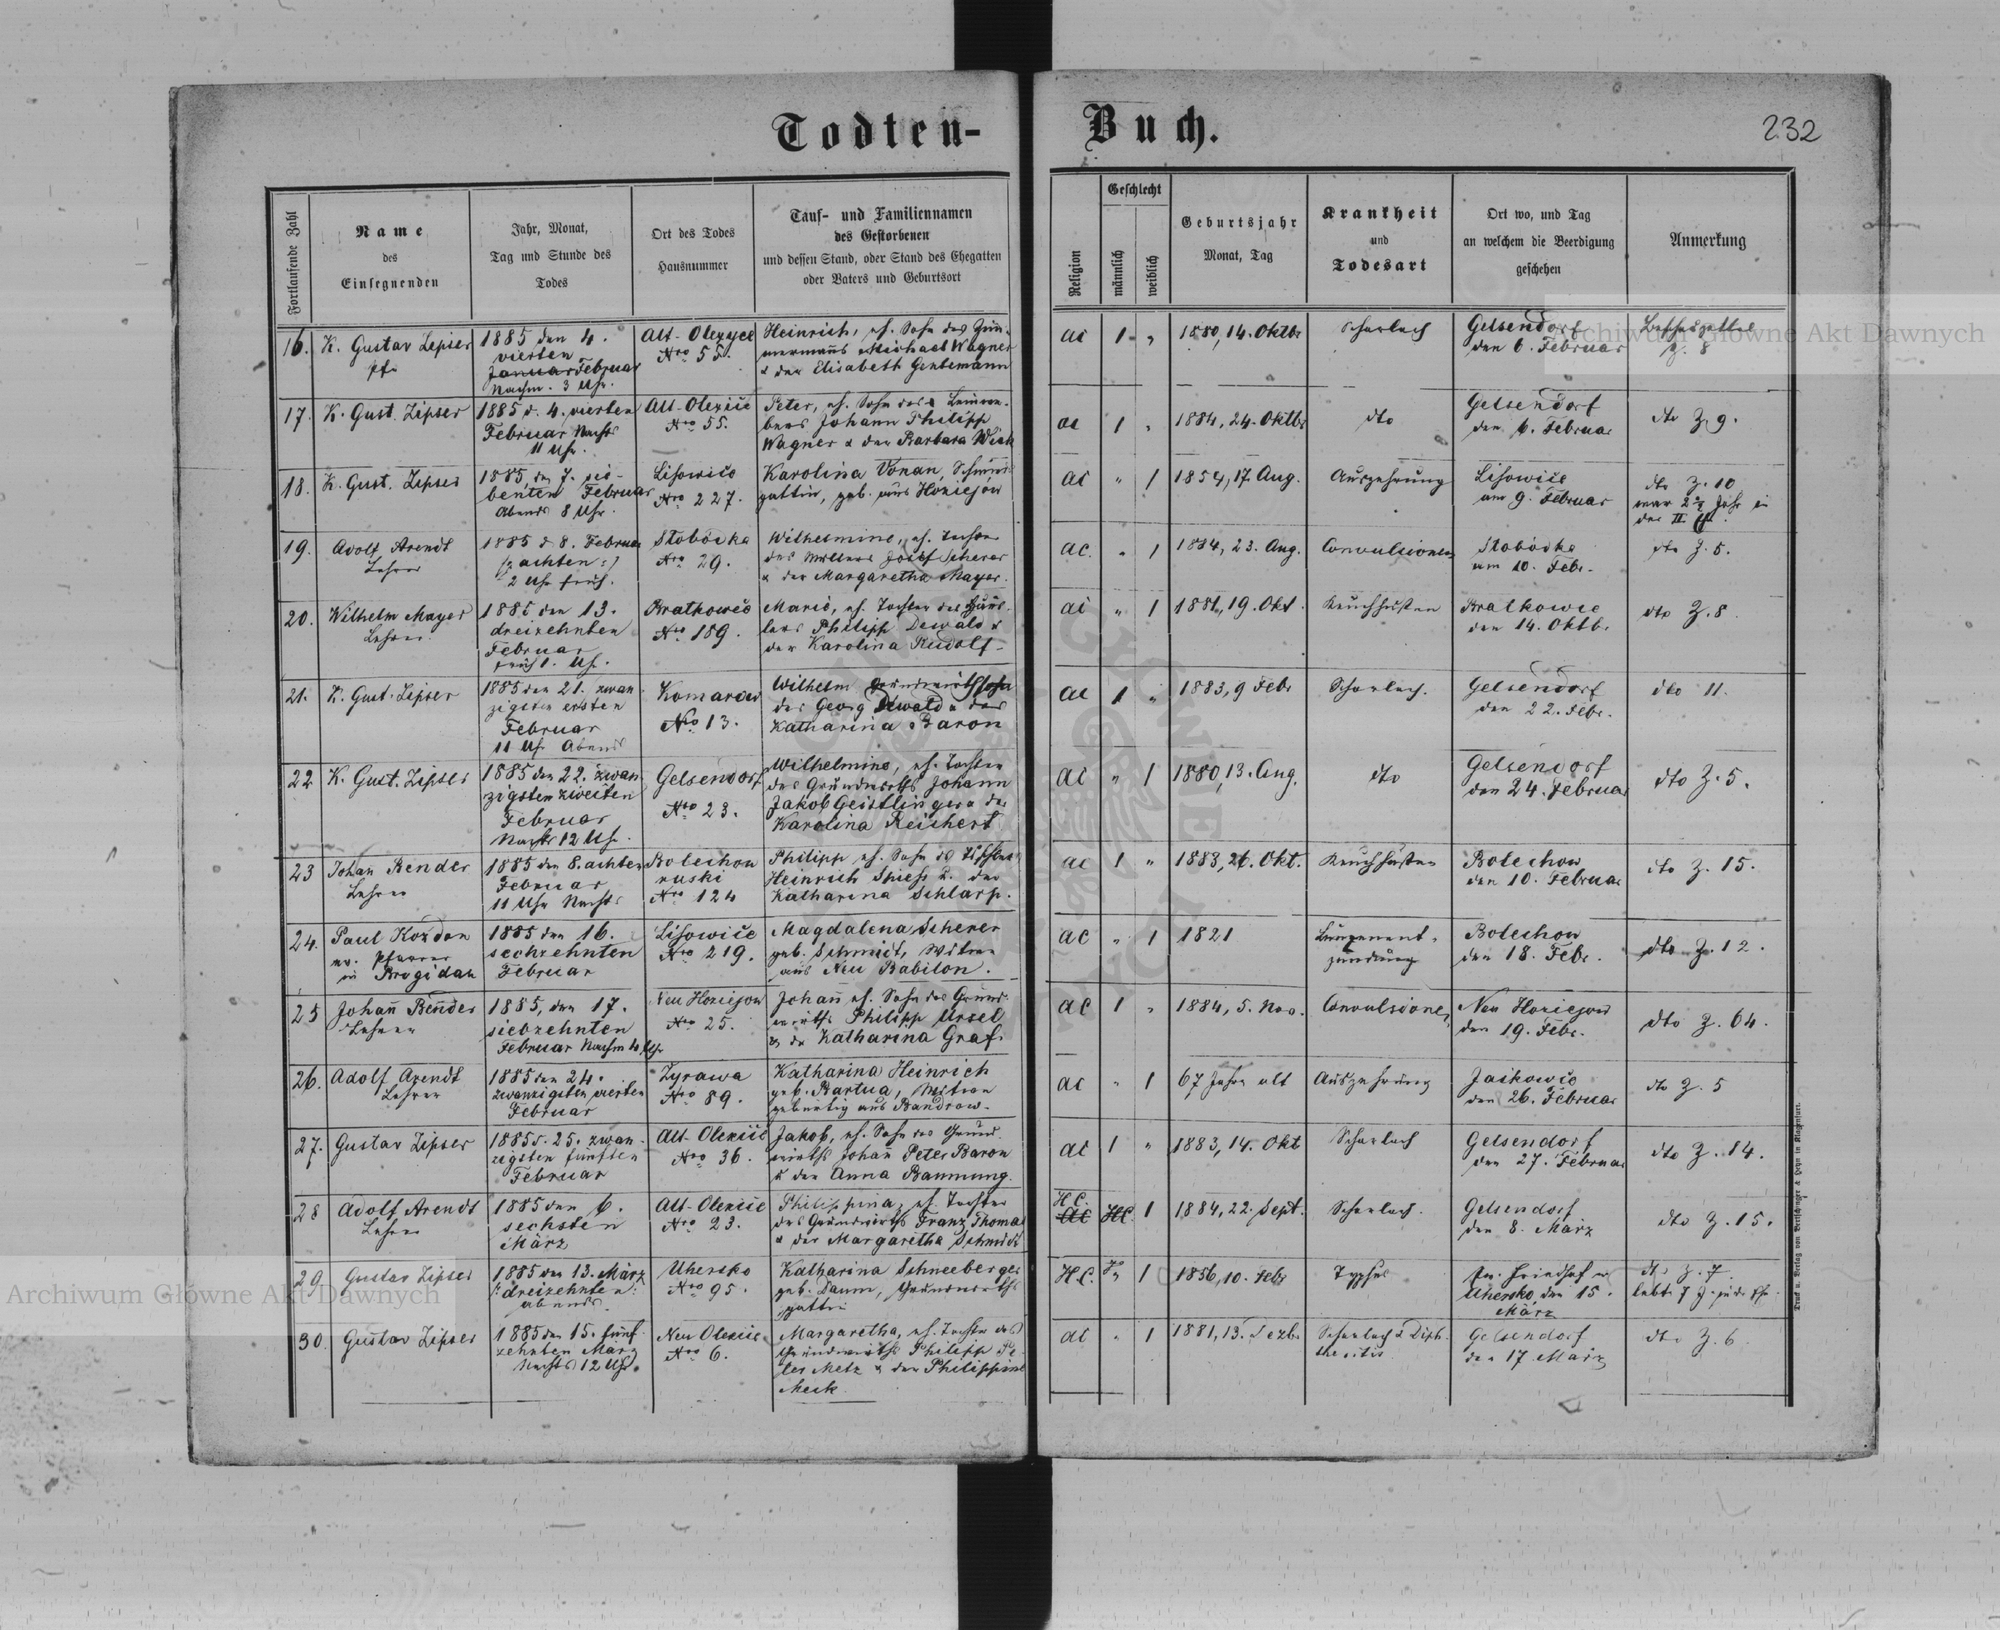 Todten- Buch.
232
Fortlaufende Zahl
Name
des
Einsegnenden
Jahr, Monat,
Tag und Stunde des
Todes
Ort des Todes
Hausnummer
Tauf- und Familiennamen
des Gestorbenen
und dessen Stand, oder Stand des Ehegatten
oder Vaters und Geburtsort
Religion
Geschlecht
männlich
weiblich
Geburtsjahr
Monat, Tag
Krankheit
und
Todesart
Ort wo, und Tag
an welchem die Beerdigung
geschehen
Anmerkung
16. K. Gustav Zipser
Pfr
1885 den 4.
vierten
Januar Februar
Nachm. 3 Uhr.
Alt-Olexyce
Nro 55.
Heinrich, eh. Sohn des Zim-
mermanns Michael Wagner
& der Elisabeth
ac 1 "
1880, 14. Oktbr
Scharlach
Gelsendorf
den 6. Februar
Z. 8
17. K. Gust. Zipser
1885 d. 4. vierten
Februar Nachts
11 Uhr.
Alt-Olexiic
Nro 55.
Peter, eh. Sohn des
Johann Philipp
Wagner & der Barbara
ac 1 "
1884, 24. Oktbr
dto
Gelsendorf
den 6. Februar
dto Z. 9.
18. K. Gust. Zipser
1885, den 7. sie-
benten Februar
Abends 8 Uhr.
Lisowice
Nro 227.
Karolina Vonau, Schmids-
gattin, geb. aus Hoziejów
ac " 1
1854, 17. Aug.
Auszehrung
Lisowice
am 9. Februar
dto Z. 10
war 2½ Jahr in
der II Ehe.
19. Adolf Arendt
Lehrer
1885 d. 8. Februar
/: achten :/
2 Uhr früh.
Stobódka
Nro 29.
Wilhelmine, eh. Tochter
des Müllers Josef Scherer
& der Margaretha Mayer.
ac. " 1
1884, 23. Aug.
Convulsionen
Stobódka
am 10. Febr.
dto Z. 5.
20. Wilhelm Mayer
Lehrer
1885 den 13.
dreizehnten
Februar
früh 1. Uhr.
Bratkowce
Nro 189.
Marie, eh. Tochter des Häus-
lers Philipp Dewald &
der Karolina Rudolf
ac " 1
1881, 19. Okt.
Keuchhusten
Bratkowce
den 14. Oktb.
dto Z. 8
21. K. Gust. Zipser
1885 den 21. zwan
zigsten ersten
Februar
11 Uhr Abends
Komarów
Nro 13.
Wilhelm Grundwirthssohn
des Georg Dewald & der
Katharina Baron
ac 1 "
1883, 9 Febr
Scharlach.
Gelsendorf
den 22. Febr.
dto 11.
22 K. Gust. Zipser
1885 den 22. zwan
zigsten zweiten
Februar
Nachts 12 Uhr.
Gelsendorf
Nro 23.
Wilhelmine, eh. Tochter
des Grundwirths Johann
Jakob Geistlinger & der
Karolina Reichert
ac " 1
1880, 13. Aug.
dto
Gelsendorf
den 24. Februar
dto Z. 5.
23 Johan Bender
Lehrer
1885 den 8. achten
Februar
11 Uhr Nachts
Bolechow
ruski
Nro 124
Philipp eh. Sohn des Tischlers
Heinrich Spiess u. der
Katharina Schlarp.
ac 1 "
1883, 26. Okt.
Keuchhusten
Bolechow
den 10. Februar
dto Z. 15.
24. Paul Kozdon
ev. Pfarrer
in Brigidau
1885 den 16.
sechzehnten
Februar
Lisowice
Nro 219.
Magdalena Scherer
geb. Schmidt, Witwe
aus Neu Babilon.
ac " 1
1821
Lungenent-
zündung
Bolechow
den 18. Febr.
dto Z. 12.
25 Johann Bender
Lehrer
1885, den 17.
siebzehnten
Februar Nachm 4 Uhr
Neu Hoziejow
Nro 25.
Johann eh. Sohn des Grund-
wirths Philipp Ursel
& der Katharina Graf.
ac 1 "
1884, 5. Nov.
Convulsionen
Neu Hoziejow
den 19. Febr.
dto Z. 64.
26. Adolf Arendt
Lehrer
1885 den 24.
zwanzigsten vierten
Februar
Zyrawa
Nro 89.
Katharina Heinrich
geb. Bartua, Witwe
gebürtig aus Bandrow.
ac " 1
67 Jahre alt
Auszehrung
Jaskowice
den 26. Februar
dto Z. 5
27. Gustav Zipser
1885 d. 25. zwan-
zigsten fünften
Februar
Alt-Olexiic
Nro 36.
Jakob, eh. Sohn des Grund-
wirths Johann Peter Baron
& der Anna Baumung.
ac 1 "
1883, 14. Okt
Scharlach
Gelsendorf
den 27. Februar
dto Z. 14.
28 Adolf Arendt
Lehrer
1885 den 6.
sechsten
März
Alt-Olexiic
Nro 23.
Philippina, eh. Tochter
des Grundwirths Franz Thomas
& der Margaretha Schmidt
H.C.
ac HC 1
1884, 22. Sept.
Scharlach.
Gelsendorf
den 8. März
dto Z. 15.
29 Gustav Zipser
1885 den 13. März
/: dreizehnten :/
abends
Uhersko
Nro 95.
Katharina Schneeberger
geb. Daum, Grundwirths
gattin
H.C. " 1
1856, 10. Febr
Typhus
Friedhof in
Uhersko den 15.
März
dto Z. 7
30. Gustav Zipser
1885 den 15. fünf-
zehnten März
Nachts 12 Uhr.
Neu Olexiic
Nro 6.
Margaretha, eh. Tochter des
Grundwirths Philipp Pe-
ter Metz & der Philippine
Meck.
ac " 1
1881, 13. Dezb.
Scharlach & Diph-
theritis
Gelsendorf
den 17 März
dto Z. 6
Druck u. Verlag von Bertschinger & Heyn in Klagenfurt.
Archiwum Główne Akt Dawnych
Archiwum Główne Akt Dawnych